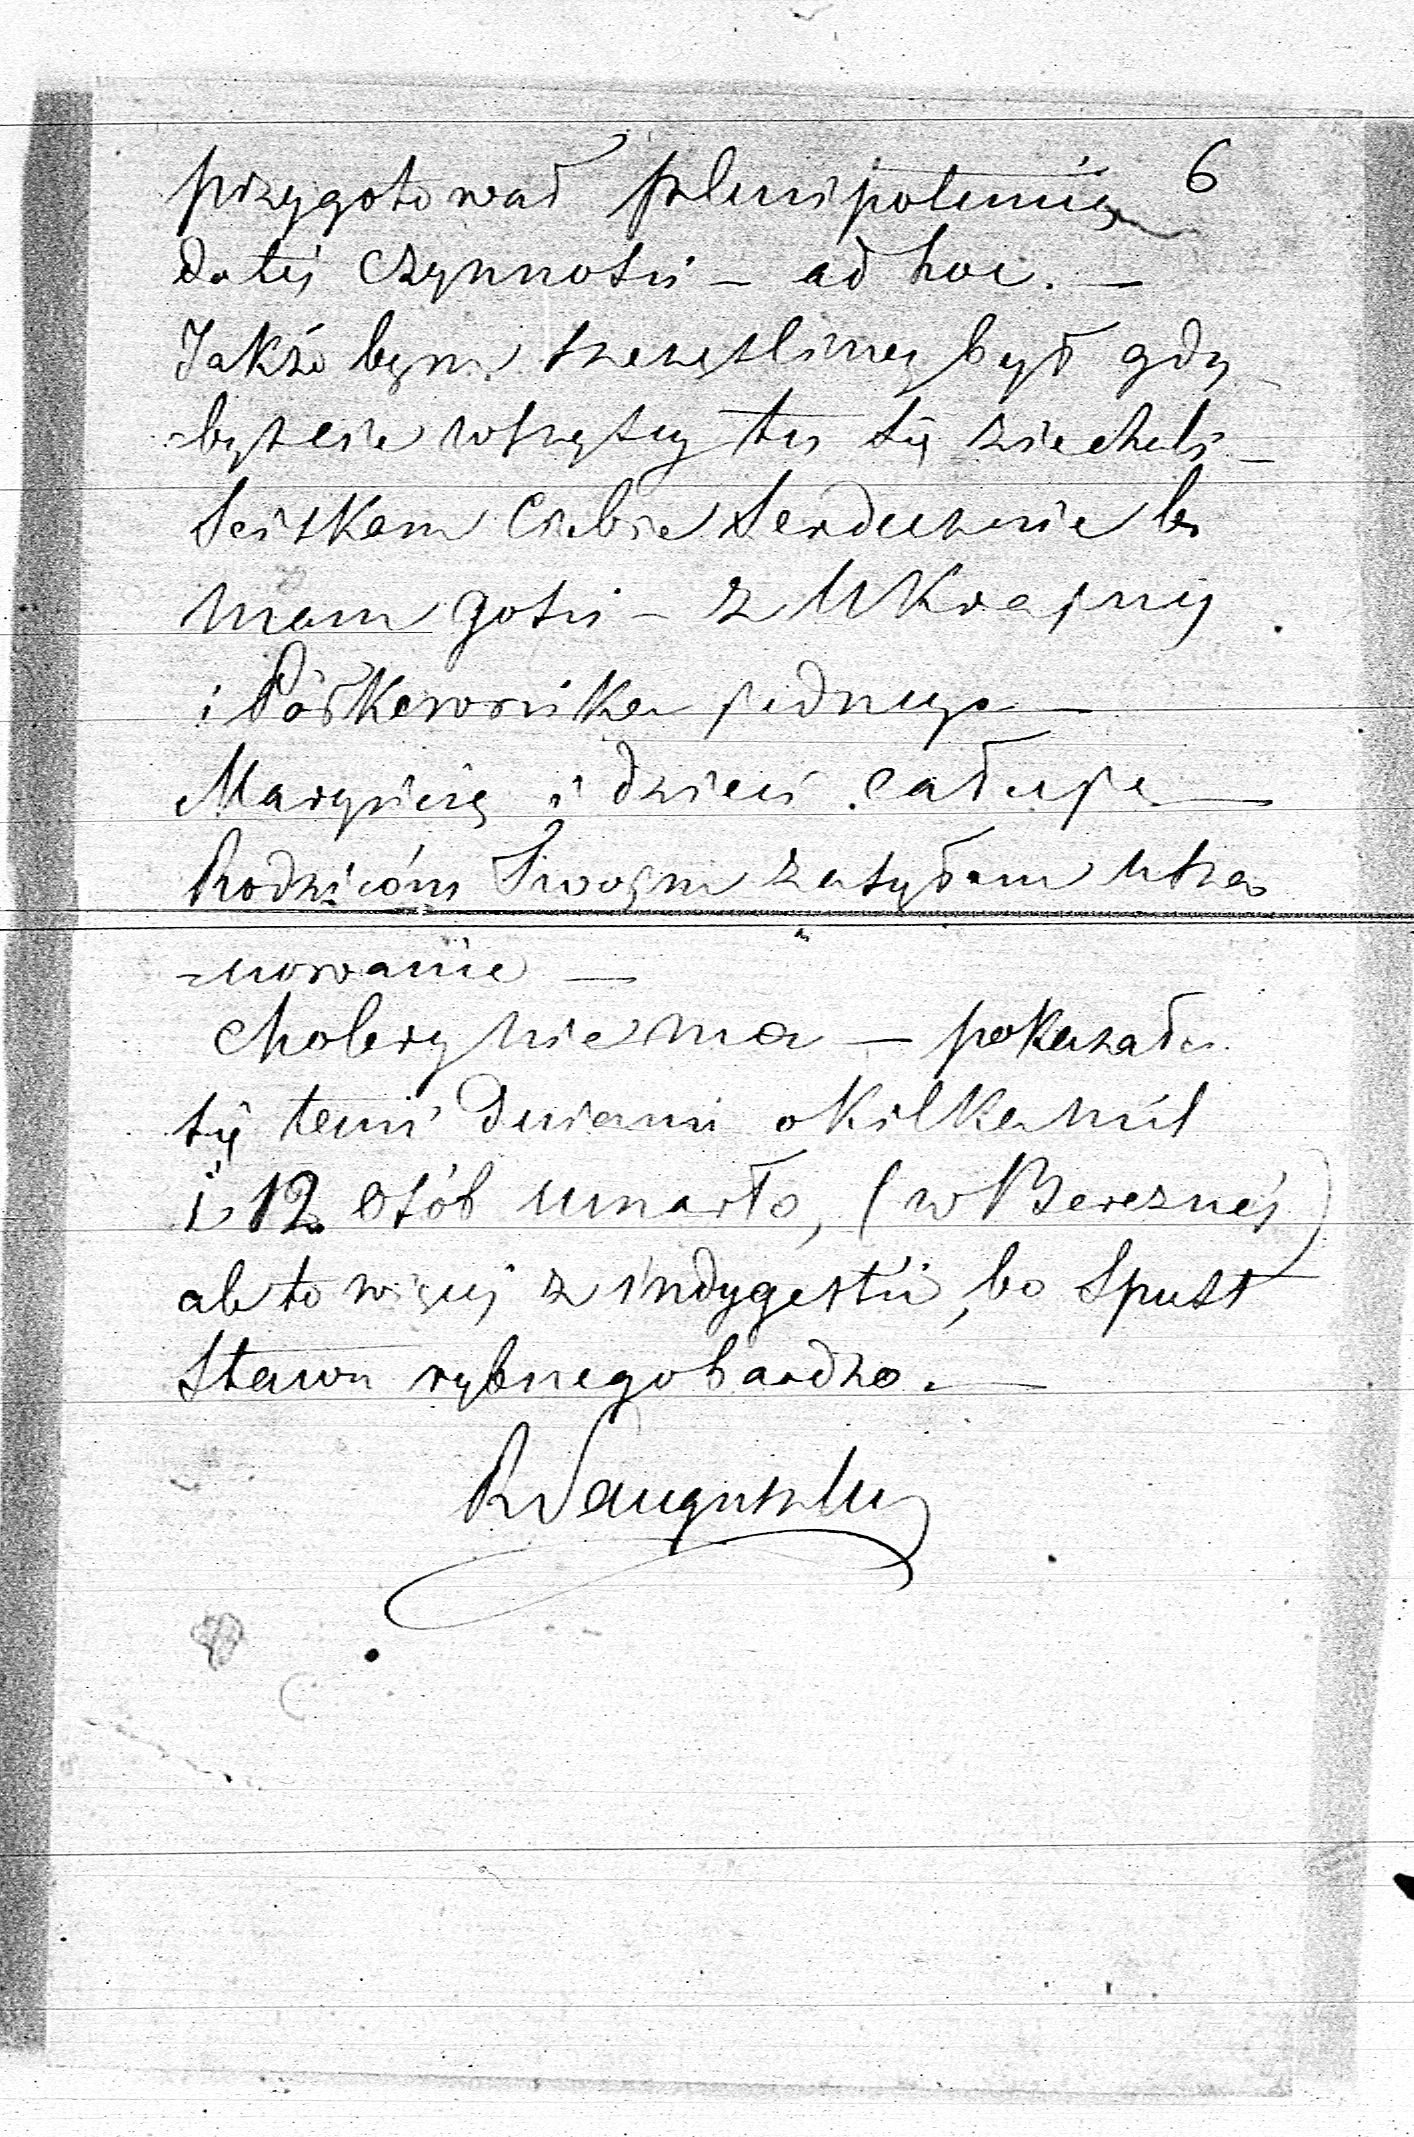 przygotował plenipotencię 6
do tej czynności – ad hoc. –
Jakże bym szczęśliwy był gdy
-byście wszyscy tu się ziechali –
Sciskam Ciebie Serdecznie bo
mam gości – z Ukrajny
i Półkownika jednego –
Marynię i dzieci całuję –
Rodzicóm Swojm zasyłam usza
-nowanie –
Cholery niema – pokazała
się temi dniami o kilka mil
i 12 osób umarło, (w Bereznej)
ale to więcej z indygestii, bo Spust
Stawu rybnego bardzo. –
RSanguszko